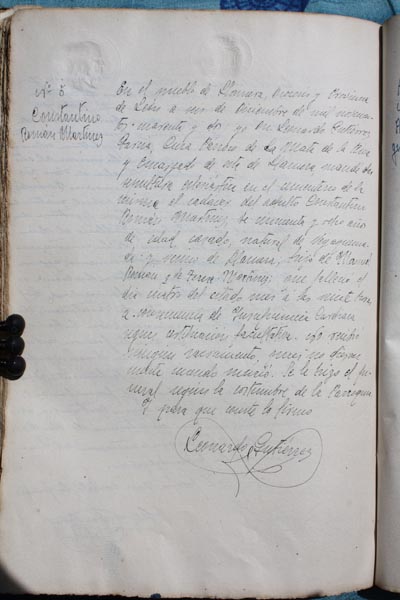 Nº 6
Constantino
Román Martínez
En el pueblo de Llamera, Diócesis y Provincia
de León a de Diciembre de mil novecien-
tos cuarenta y dos yo Don Leonardo Gutiérrez
García, Cura Párroco de La Mata de la Riva
y Encargado de este de Llamera, mandé dar
sepultura eclesiástica en el cementerio de la
misma el cadáver del adulto Constantino
Román Martínez de cincuenta y ocho años
de edad casado, natural de
y vecino de Llamera; hijo de
Román y de Teresa Martínez; que falleció el
día catorce del citado mes a las
a consecuencia de Insuficiencia Cardiaca
según certificación facultativa. No recibió
ningún sacramento,
mente cuando murió. Se le hizo el fu-
neral según la costumbre de la Parroquia
Y para que conste lo firmo
Leonardo Gutierrez